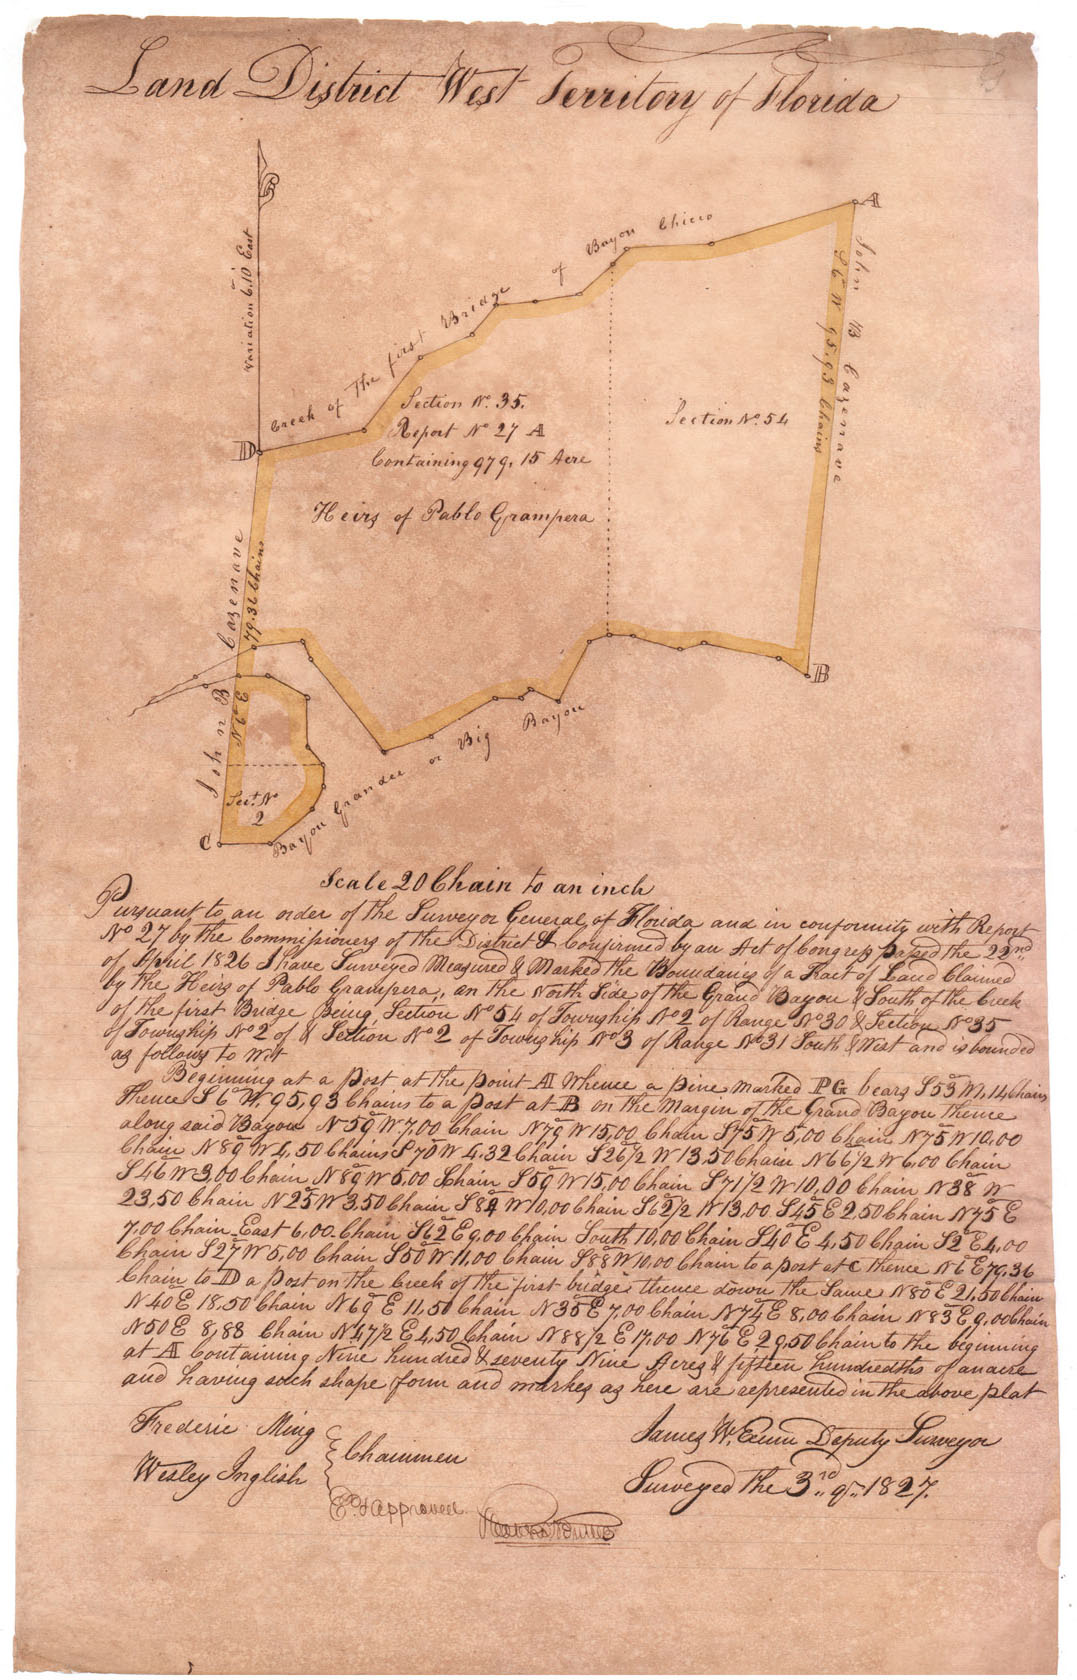 Land District West Territory of Florida
Variation 6.10 East
A
Creek of The first Bridge of Bayou Chico
John B Cazenave
S 6 W 95.93 Chains
Section No. 35.
Report No 27 A
Containing 979, 15 Acre
Section No. 54
Heirs of Pablo Grampera
D
John B Cazenave
N 6 E 79.36 Chains
B
Sect. No
2
C
Bayou Grandee or Big Bayou
Scale 20 Chain to an inch
Pursuant to an order of the Surveyor General of Florida and in conformity with Report
No 27 by the Commissioners of the District & Confirmed by an Act of Congress passed the 22nd
of April 1826 I have Surveyed Measured & Marked the Boundaries of a Tract of Land Claimed
by the Heirs of Pablo Grampera, on the North Side of the Grand Bayou & South of the Creek
of the first Bridge Being Section No 54 of Township No 2 of Range No 30 & Section No 35
of Township No 2 of & Section No 2 of Township No 3 of Range No 31 South & West and is bounded
as follows to wit
Beginning at a post at the point A Whence a pine marked PG bears S 53 W 1,14 Chains
Thence S 6 W, 95,93 Chains to a post at B on the Margin of the Grand Bayou thence
along said Bayou N 59 W 7,00 Chain N 79 W 15,00 Chain S 75 W 5,00 Chain N 75 W 10,00
Chain N 89 W 4,50 Chains S 70 W 4.32 Chain S 26 1/2 W 13,50 Chain N 66 1/2 W 6,00 Chain
S 46 W 3,00 Chain N 89 W 5,00 Chain S 59 W 15,00 Chain S 71 1/2 W 10,00 Chain N 38 W
23,50 Chain N 25 W 3,50 Chain S 84 W 10,00 Chain S 62 1/2 W 13,00 S 45 E 2,50 Chain N 75 E
7,00 Chain East 6,00 Chain S 62 E 9,00 Chain South 10,00 Chain S 40 E 4,50 Chain S 2 E 4,00
Chain S 27 W 5,00 Chain S 50 W 11,00 Chain S 88 W 10,00 Chain to a post at C thence N 6 E 79,36
Chain to D a post on the Creek of the first bridge thence down the Same N 80 E 21,50 Chain
N 40 E 18,50 Chain N 69 E 11,50 Chain N 35 E 7,00 Chain N 74 E 8,00 Chain N 83 E 9,00 Chain
N 50 E 8,88 Chain N 47 1/2 E 4,50 Chain N 88 1/2 E 17,00 N 76 E 29,50 Chain to the beginning
at A Containing Nine hundred & seventy Nine Acres & fifteen hundredths of an acre
and having such shape form and markes as here are represented in the above plat
Frederic Ming
Wesley Inglish
Chainmen
James W. Exum Deputy Surveyor
Surveyed The 3rd 1827.
Ex & Approved